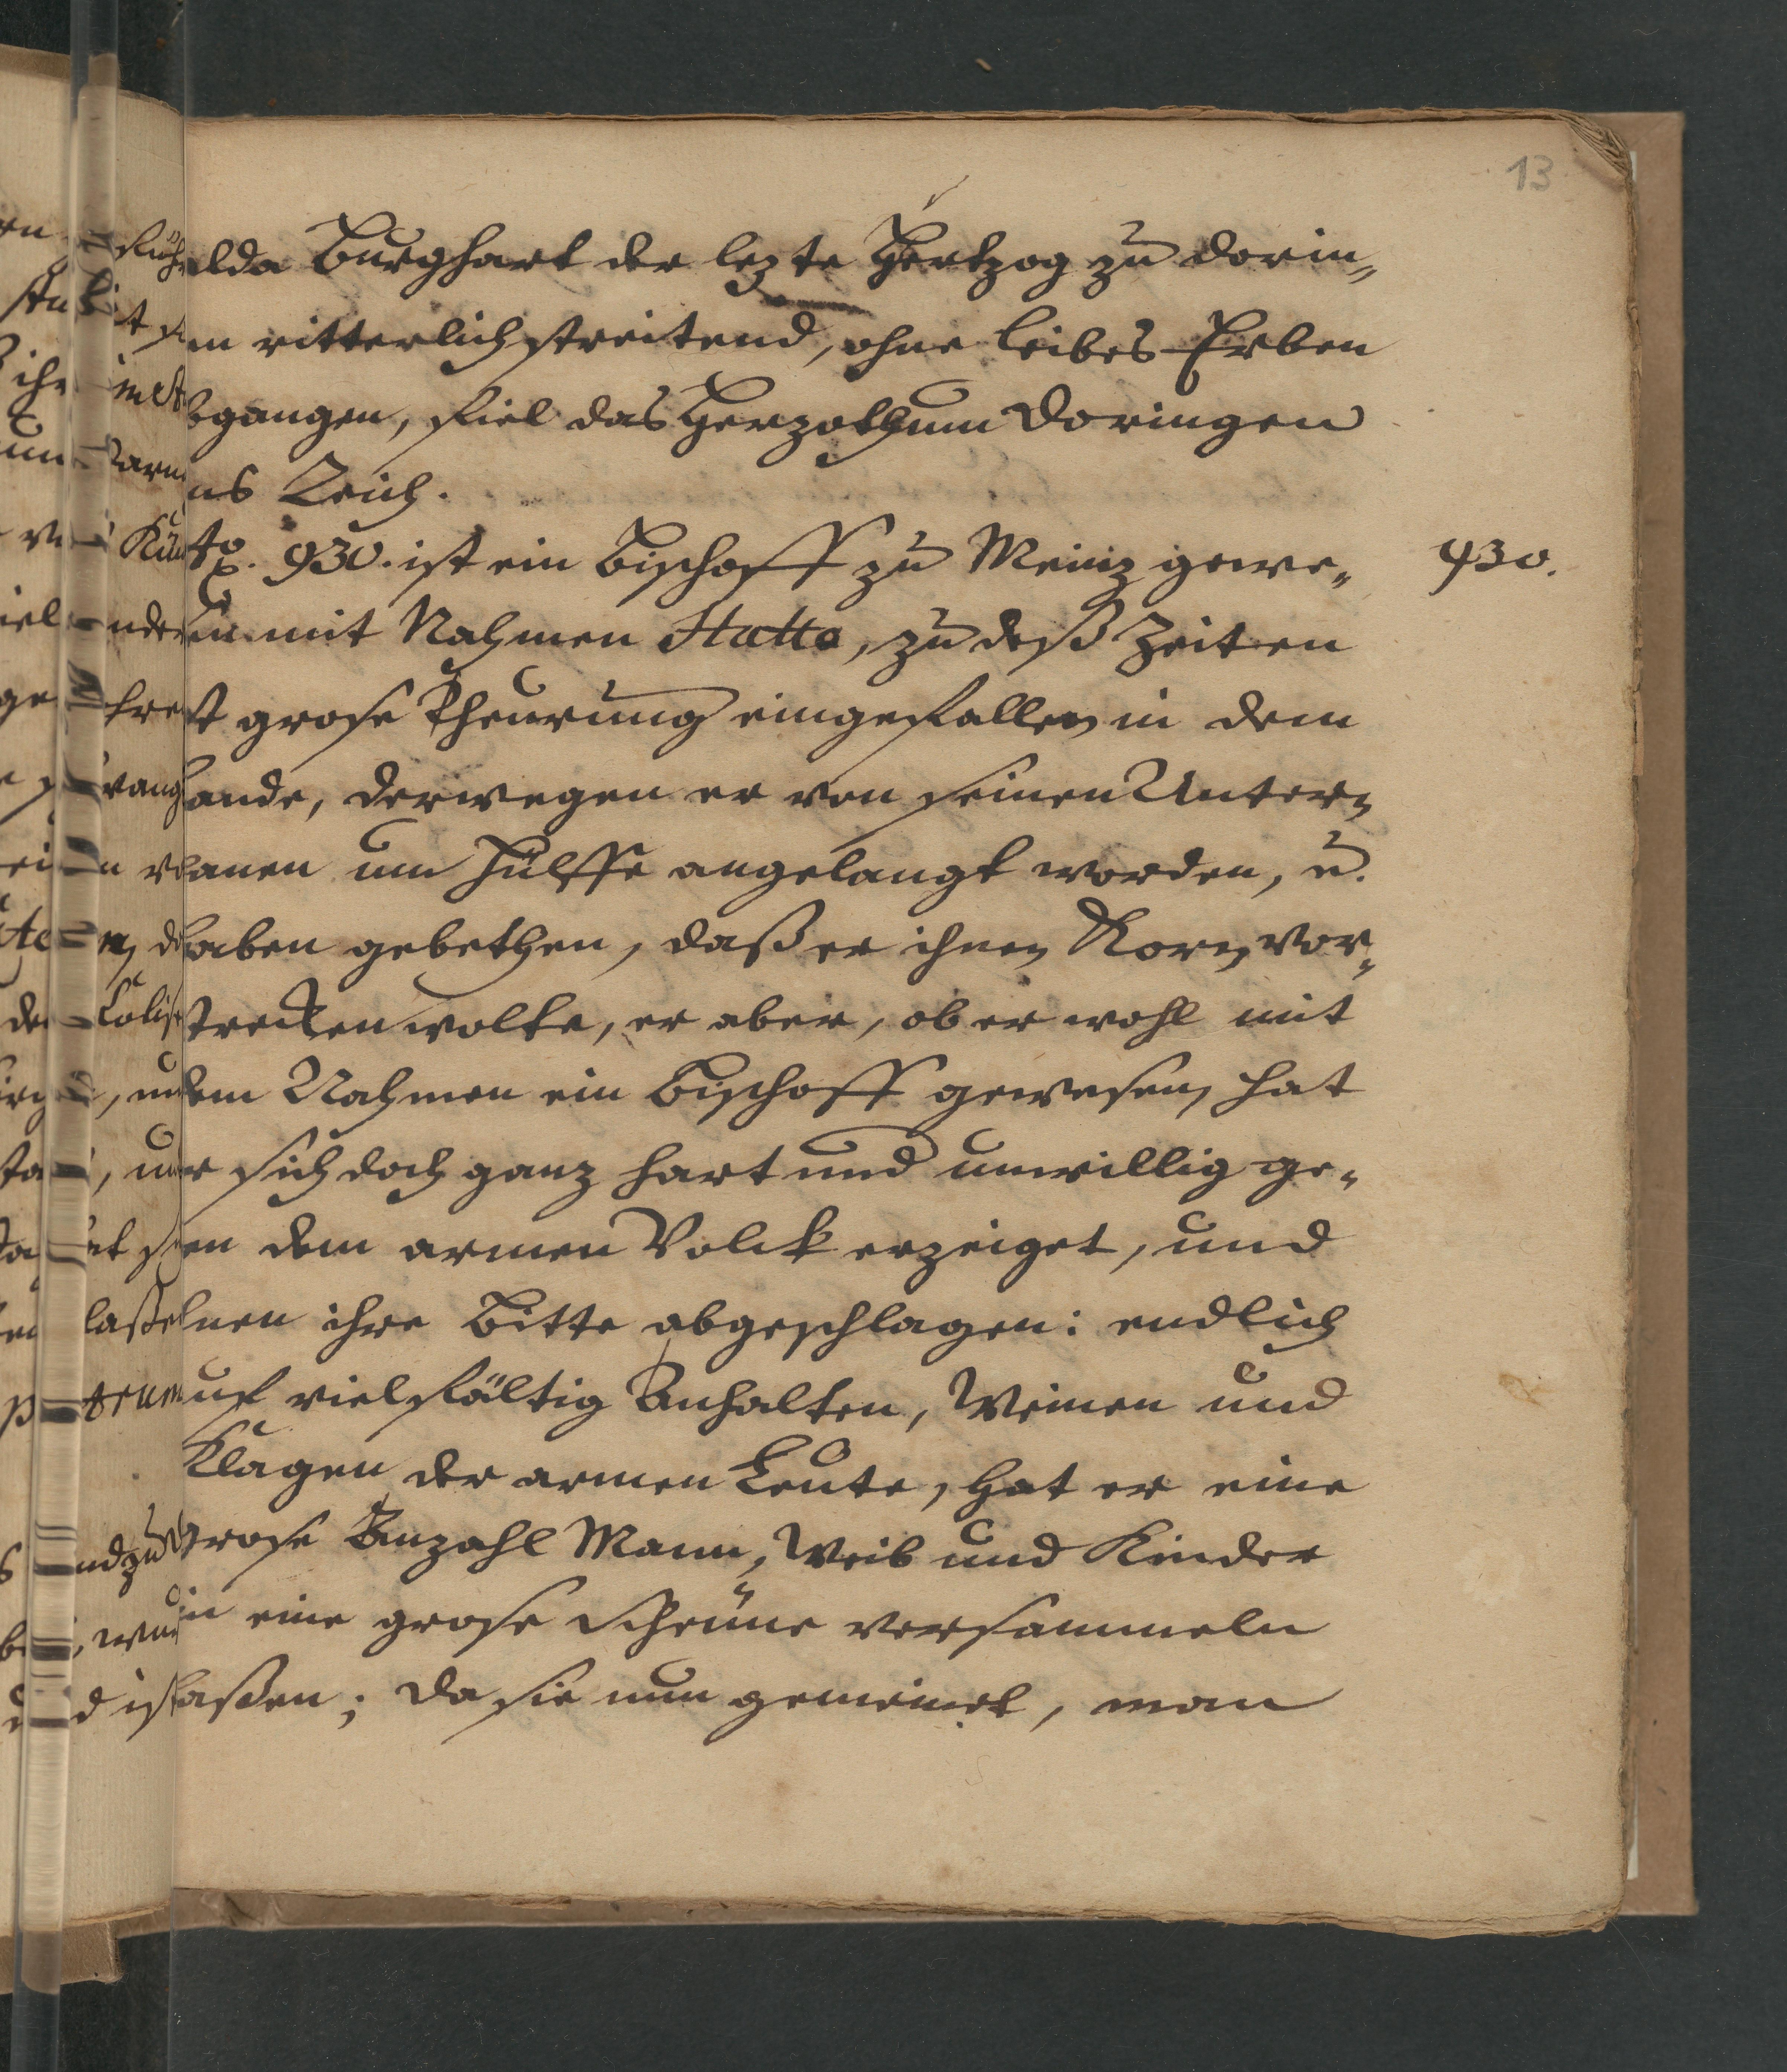 13
alda Burghart der lezte Hertzog zu Dorin„
en ritterlich streitend, ohne Leibes-Erben
bgangen, fiel das Herzogthum Doringen
ns Reich.
Ao. 930. ist ein Bischoff zu Meinz gewe„
en mit Nahmen Hatto, zu deß Zeiten
st grose Theurung eingefallen in dem
ande, derwegen er von seinen Untern
anen um Hülffe angelangt worden, u.
aben gebethen, daß er ihnen Korn vor„
strecken wolte, er aber, ob er wohl mit
dem Nahmen ein Bischoff gewesen, hat
er sich doch ganz hart und unwillig ge„
en dem armen Volck erzeiget, und
hnen ihre Bitte abgeschlagen: endlich
uf vielfältig Anhalten, Weinen und
Klagen der armen Leute, hat er eine
grose Anzahl Mann, Weib und Kinder
in eine grose Scheune versammeln
laßen; da sie nun gemeinet, man
930.